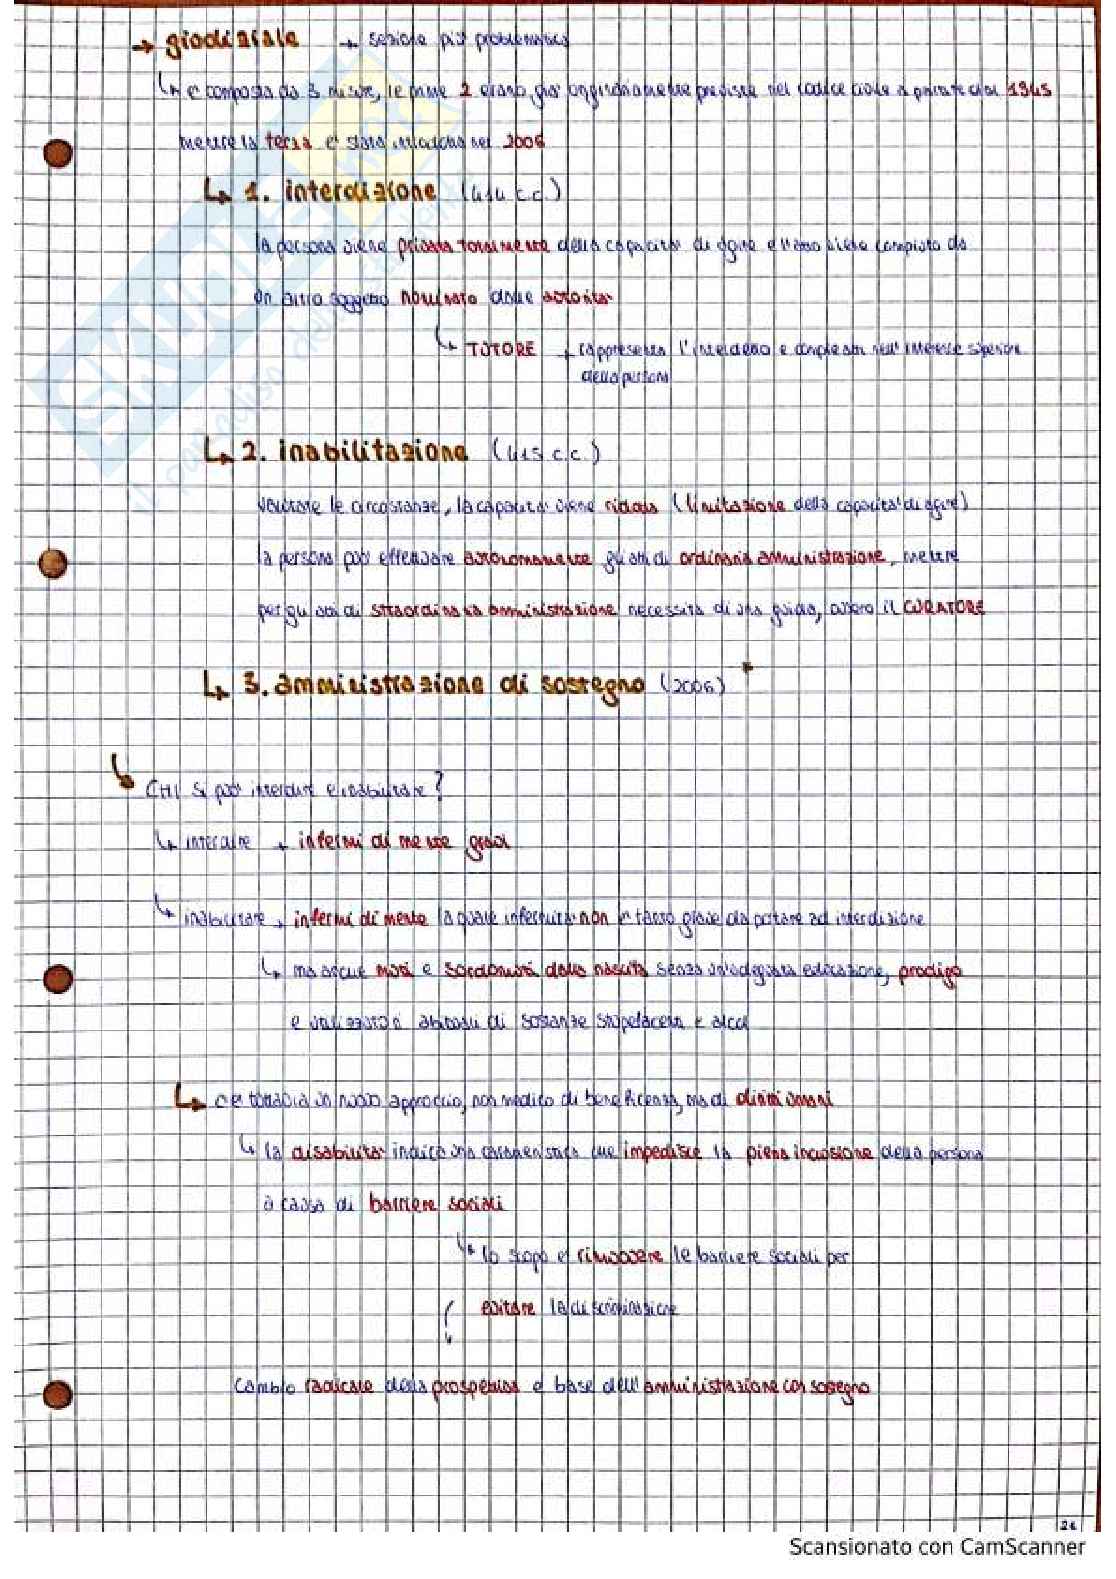 → giudiziale → sezione più problematica
↳ è composta da 3 misure, le prime 2 erano già originariamente previste nel codice civile a partire dal 1945
mentre la terza è stata introdotta nel 2006
↳ 1. interdizione (414 c.c.)
la persona viene privata totalmente della capacità di agire e l'atto viene compiuto da
un altro soggetto nominato dalle autorità
↳ TUTORE → rappresenta l'interdetto e compie atti nell'interesse superiore
della persona
↳ 2. inabilitazione (415 c.c.)
valutate le circostanze, la capacità viene ridotta (limitazione della capacità di agire)
la persona può effettuare autonomamente gli atti di ordinaria amministrazione, mentre
per gli atti di straordinaria amministrazione necessita di una guida, ovvero il CURATORE
↳ 3. amministrazione di sostegno (2006) *
↳ CHI si può interdire e inabilitare?
↳ interdire → infermi di mente gravi
↳ inabilitare → infermi di mente la quale infermità non è tanto grave da portare ad interdizione
↳ ma anche muti e sordomuti dalla nascita senza un'adeguata educazione, prodigo
e utilizzatori abituali di sostanze stupefacenti e alcol
↳ c'è tuttavia un nuovo approccio, non medico di beneficenza, ma di diritti umani
↳ la disabilità indica una caratteristica che impedisce la piena inclusione della persona
a causa di barriere sociali
↳ lo scopo è rimuovere le barriere sociali per
evitare la discriminazione
Cambio radicale della prospettiva e base dell'amministrazione con sostegno
26
Scansionato con CamScanner